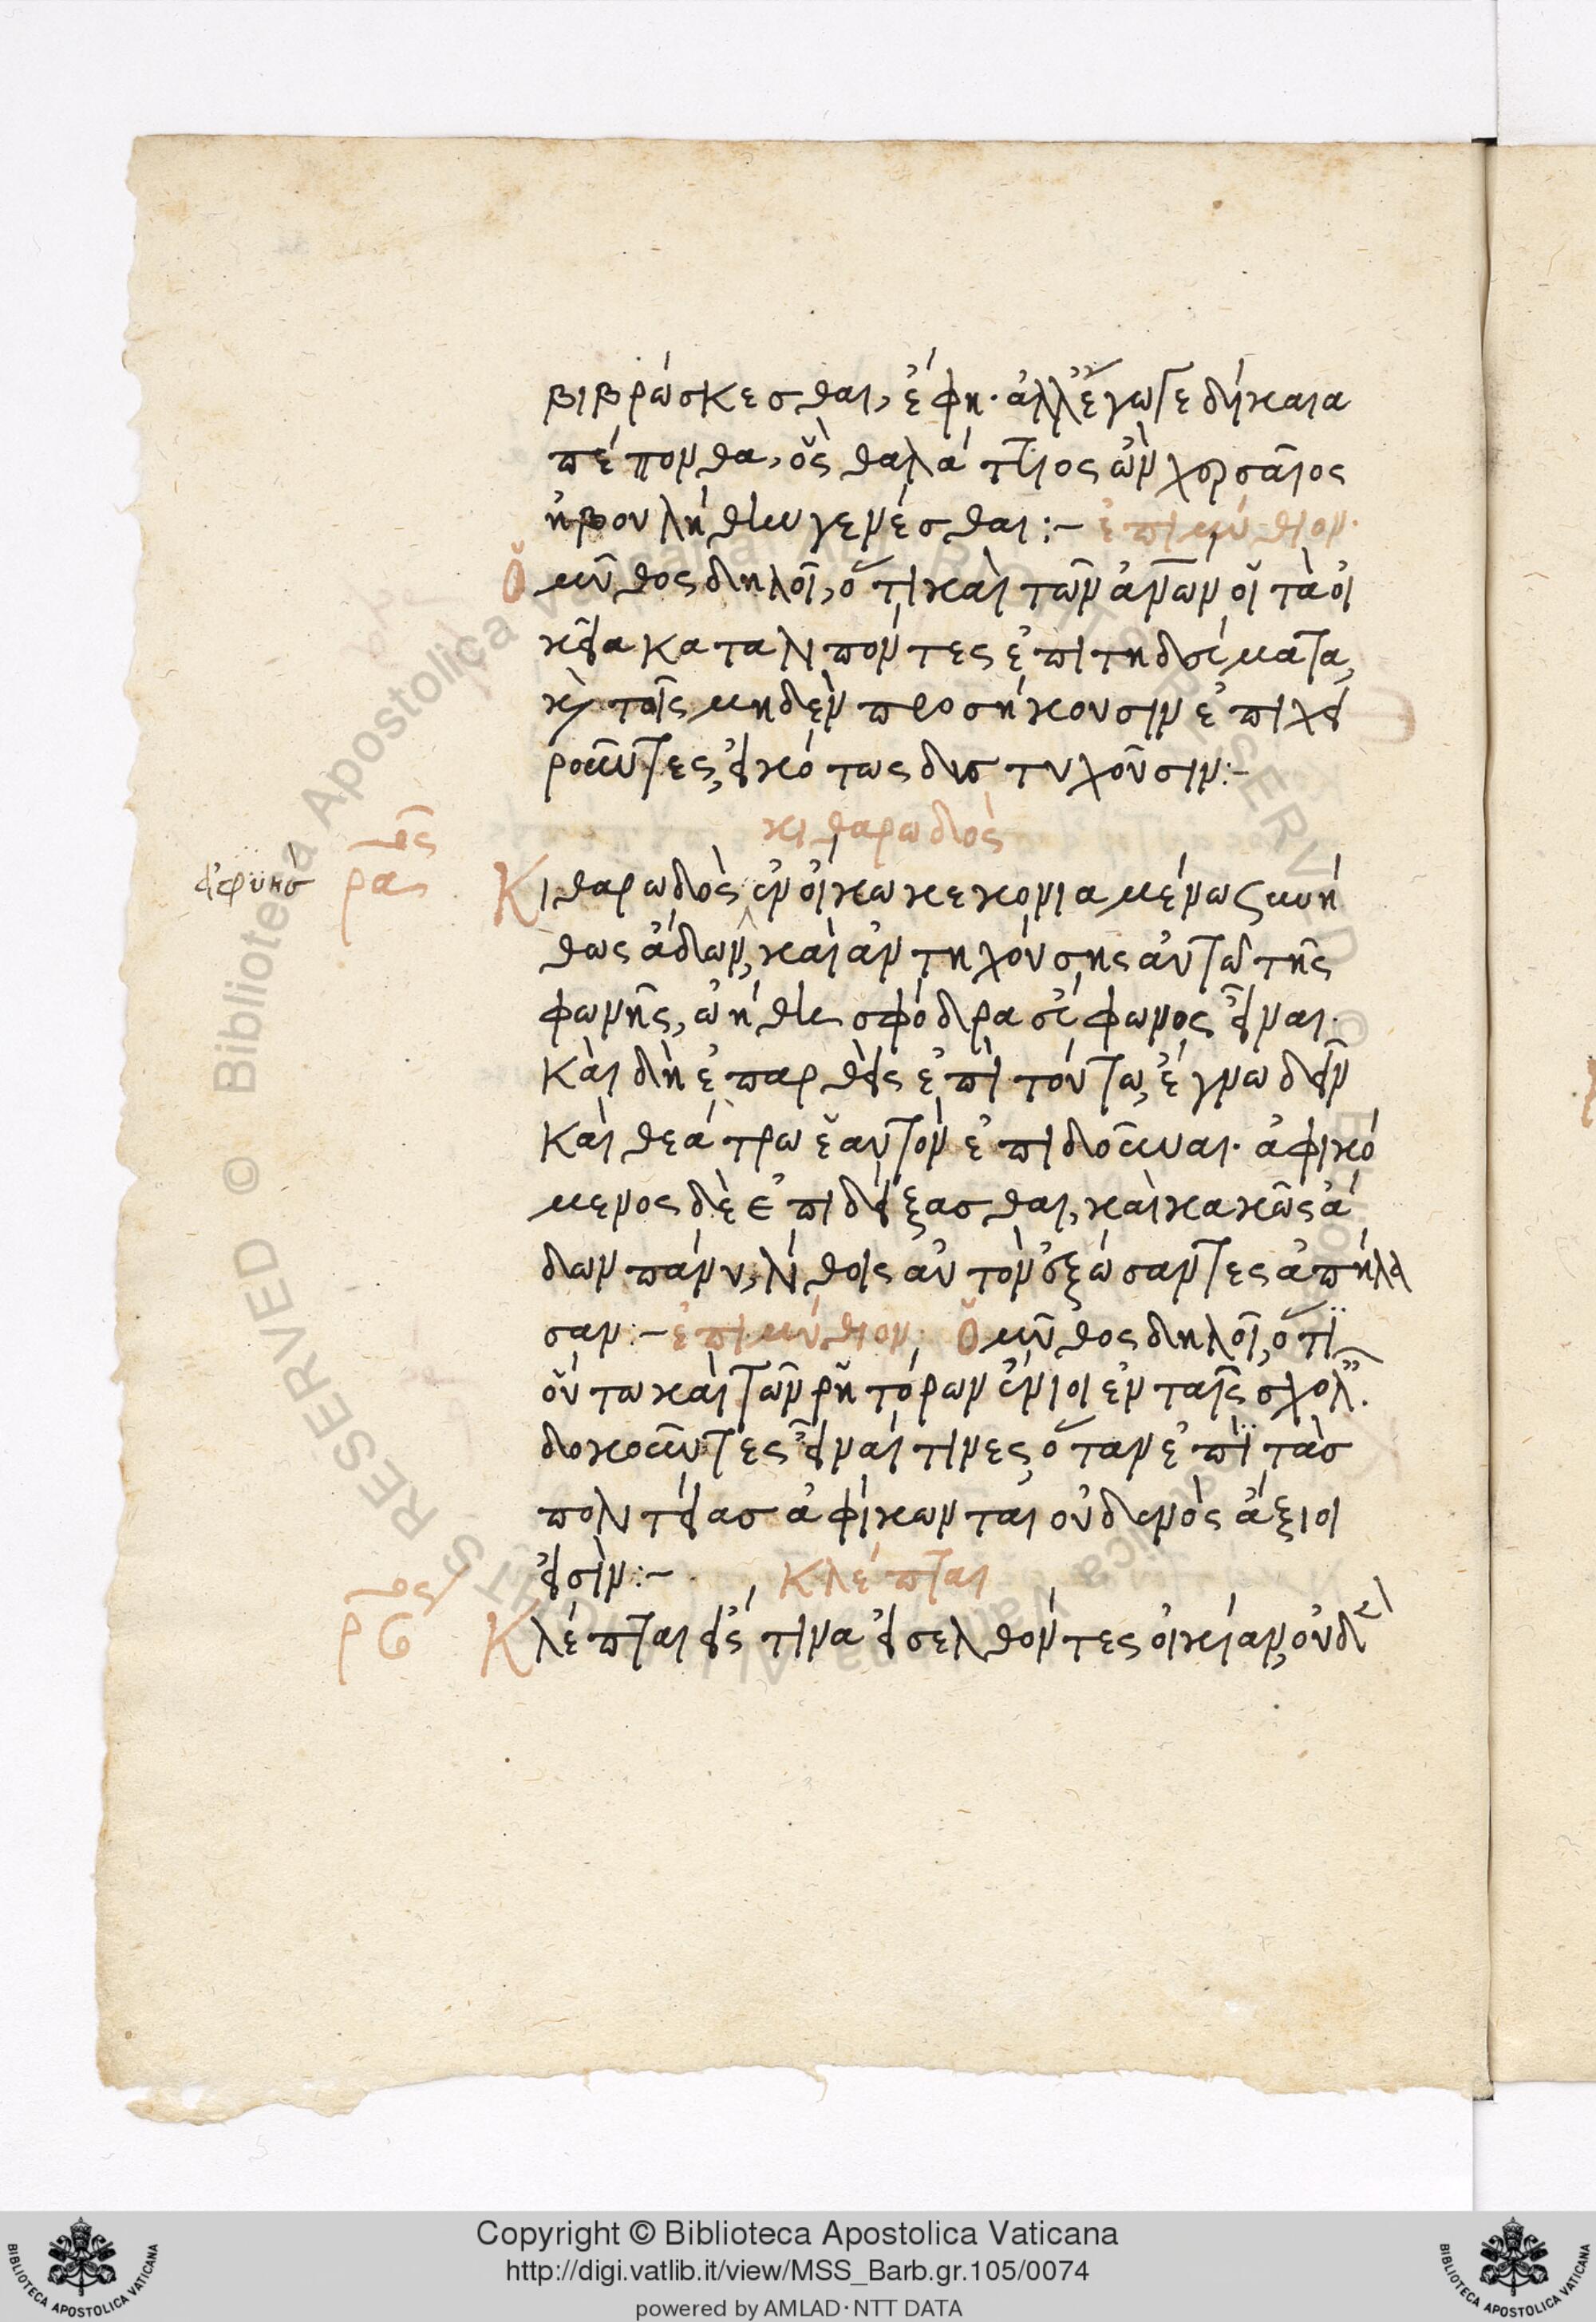 βιβρώσκεσθαι, ἔφη· ἀλλ' ἔγωγε δίκαια
πέπονθα, ὃς θαλάττιος ὢν χερσαῖος
ἠβουλήθην γενέσθαι :- ἐπιμύθιον.
Ὁ μῦθος δηλοῖ, ὅτι καὶ τῶν ἀνῶν οἳ τὰ οἰ
κεῖα καταλιπόντες ἐπιτηδεύματα,
κὶ τοῖς μηδὲν προσήκουσιν ἐπιχει
ροῦντες, εἰκότως δυστυχοῦσιν :-
κιθαρωδὸς
ρα
Κιθαρωδὸς ἐν οἴκω κεκονιαμένω συνή
ἀφυὴσ
θως ἄδων, καὶ ἀντηχούσης αὐτῶ τῆς
φωνῆς, ὠήθη σφόδρα εὔφωνος εἶναι.
Καὶ δὴ ἐπαρθεὶς ἐπὶ τούτω, ἔγνω δεῖν
Καὶ θεάτρω ἑαυτὸν ἐπιδοῦναι. ἀφικό
μενος δὲ ἐπιδείξασθαι, καὶ κακῶς ἄ
δων πάνυ, λίθοις αὐτὸν ἐξώσαντες ἀπήλα
σαν :- ἐπιμύθιον. Ὁ μῦθος δηλοῖ, ὅτι
οὕτω καὶ τῶν ῥητόρων ἔνιοι ἐν ταῖς σχολ.
δοκοῦντες εἶναί τινες, ὅταν ἐπὶ τὰσ
πολιτείασ ἀφίκωνται οὐδενὸς ἄξιοι
εἰσὶν :- Κλέπται
ρϛ
Κλέπται εἴς τινα εἰσελθόντες οἰκίαν, οὐδὲ
Copyright © Biblioteca Apostolica Vaticana
http://digi.vatlib.it/view/MSS_Barb.gr.105/0074
powered by AMLAD · NTT DATA